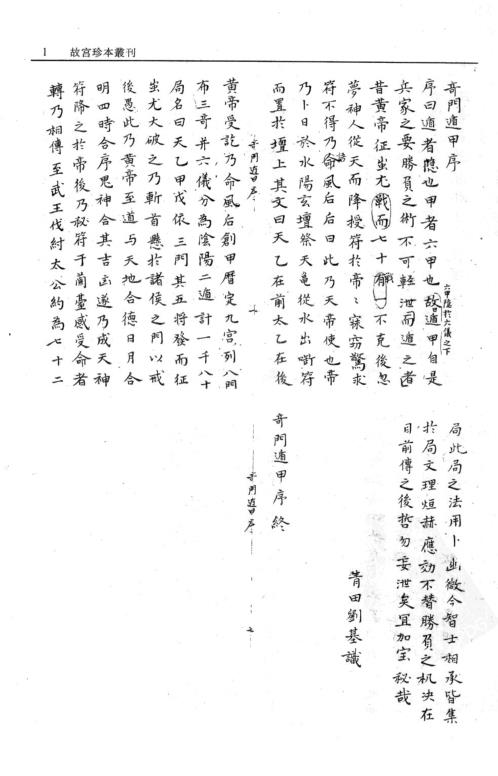 1 故宮珍本叢刊
奇門遁甲序
序曰遁者隱也甲者六甲也故遁甲自是
六甲隐於六儀之下
兵家之要勝負之術不可輕泄而遁之者
昔黃帝征蚩尤戰而七十有一不克後忽
夢神人從天而降授符於帝〻寐窈驚求
符不得乃命風后后曰此乃天帝使也帝
乃卜日於水陽玄壇祭天黿從水出啣符
而置於壇上其文曰天乙在前太乙在後
奇門遁甲序
黃帝受訖乃命風后創甲曆定九宮列八門
布三奇并六儀分為陰陽二遁計一千八十
局名曰天乙甲戊依三門其五將發而征
蚩尤大破之乃斬首懸於諸侯之門以戒
後愚此乃黃帝至道与天地合德日月合
明四時合序鬼神合其吉凶遂乃成天神
符降之於帝後乃秘符于蘭臺感受命者
轉乃相傳至武王伐紂太公約為七十二
局此局之法用卜幽微今智士相承皆集
於局文理烜赫應効不替勝負之机决在
目前傳之後哲勿妄泄矣宜加宝秘哉
青田劉基識
奇門遁甲序終
奇門遁甲序